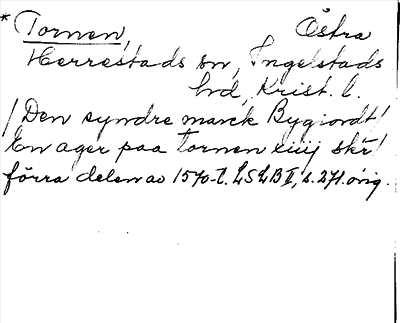 * Tornen, Östra
Herrestads sn, Ingelstads
hrd, Krist. l.
/Den syndre marck Bygiordt/
En ager paa tornen iiij skr/
förra delen av 1570-t. LSLB II, s. 271. orig.